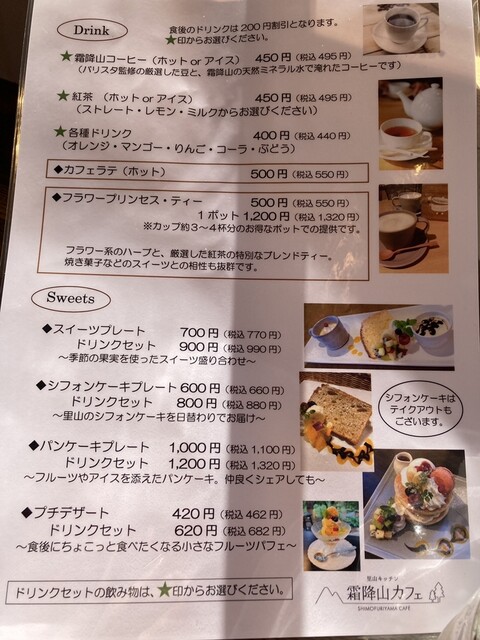 Drink
食後のドリンクは200円割引となります。
★印からお選びください。
★霜降山コーヒー（ホット or アイス） 450円（税込 495円）
（バリスタ監修の厳選した豆と、霜降山の天然ミネラル水で淹れたコーヒーです）
★紅茶 （ホット or アイス） 450円（税込 495円）
（ストレート・レモン・ミルクからお選びください）
★各種ドリンク 400円（税込 440円）
（オレンジ・マンゴー・りんご・コーラ・ぶどう）
◆カフェラテ（ホット） 500円（税込 550円）
◆フラワープリンセス・ティー 500円（税込 550円）
1ポット 1,200円（税込 1,320円）
※カップ約3～4杯分のお得なポットでの提供です。
フラワー系のハーブと、厳選した紅茶の特別なブレンドティー。
焼き菓子などのスイーツとの相性も抜群です。
Sweets
◆スイーツプレート 700円（税込 770円）
ドリンクセット 900円（税込 990円）
～季節の果実を使ったスイーツ盛り合わせ～
◆シフォンケーキプレート 600円（税込 660円）
ドリンクセット 800円（税込 880円）
～里山のシフォンケーキを日替わりでお届け～
シフォンケーキは
テイクアウトも
ございます。
◆パンケーキプレート 1,000円（税込 1,100円）
ドリンクセット 1,200円（税込 1,320円）
～フルーツやアイスを添えたパンケーキ。仲良くシェアしても～
◆プチデザート 420円（税込 462円）
ドリンクセット 620円（税込 682円）
～食後にちょこっと食べたくなる小さなフルーツパフェ～
ドリンクセットの飲み物は、★印からお選びください。
里山キッチン
霜降山カフェ
SHIMOFURIYAMA CAFE